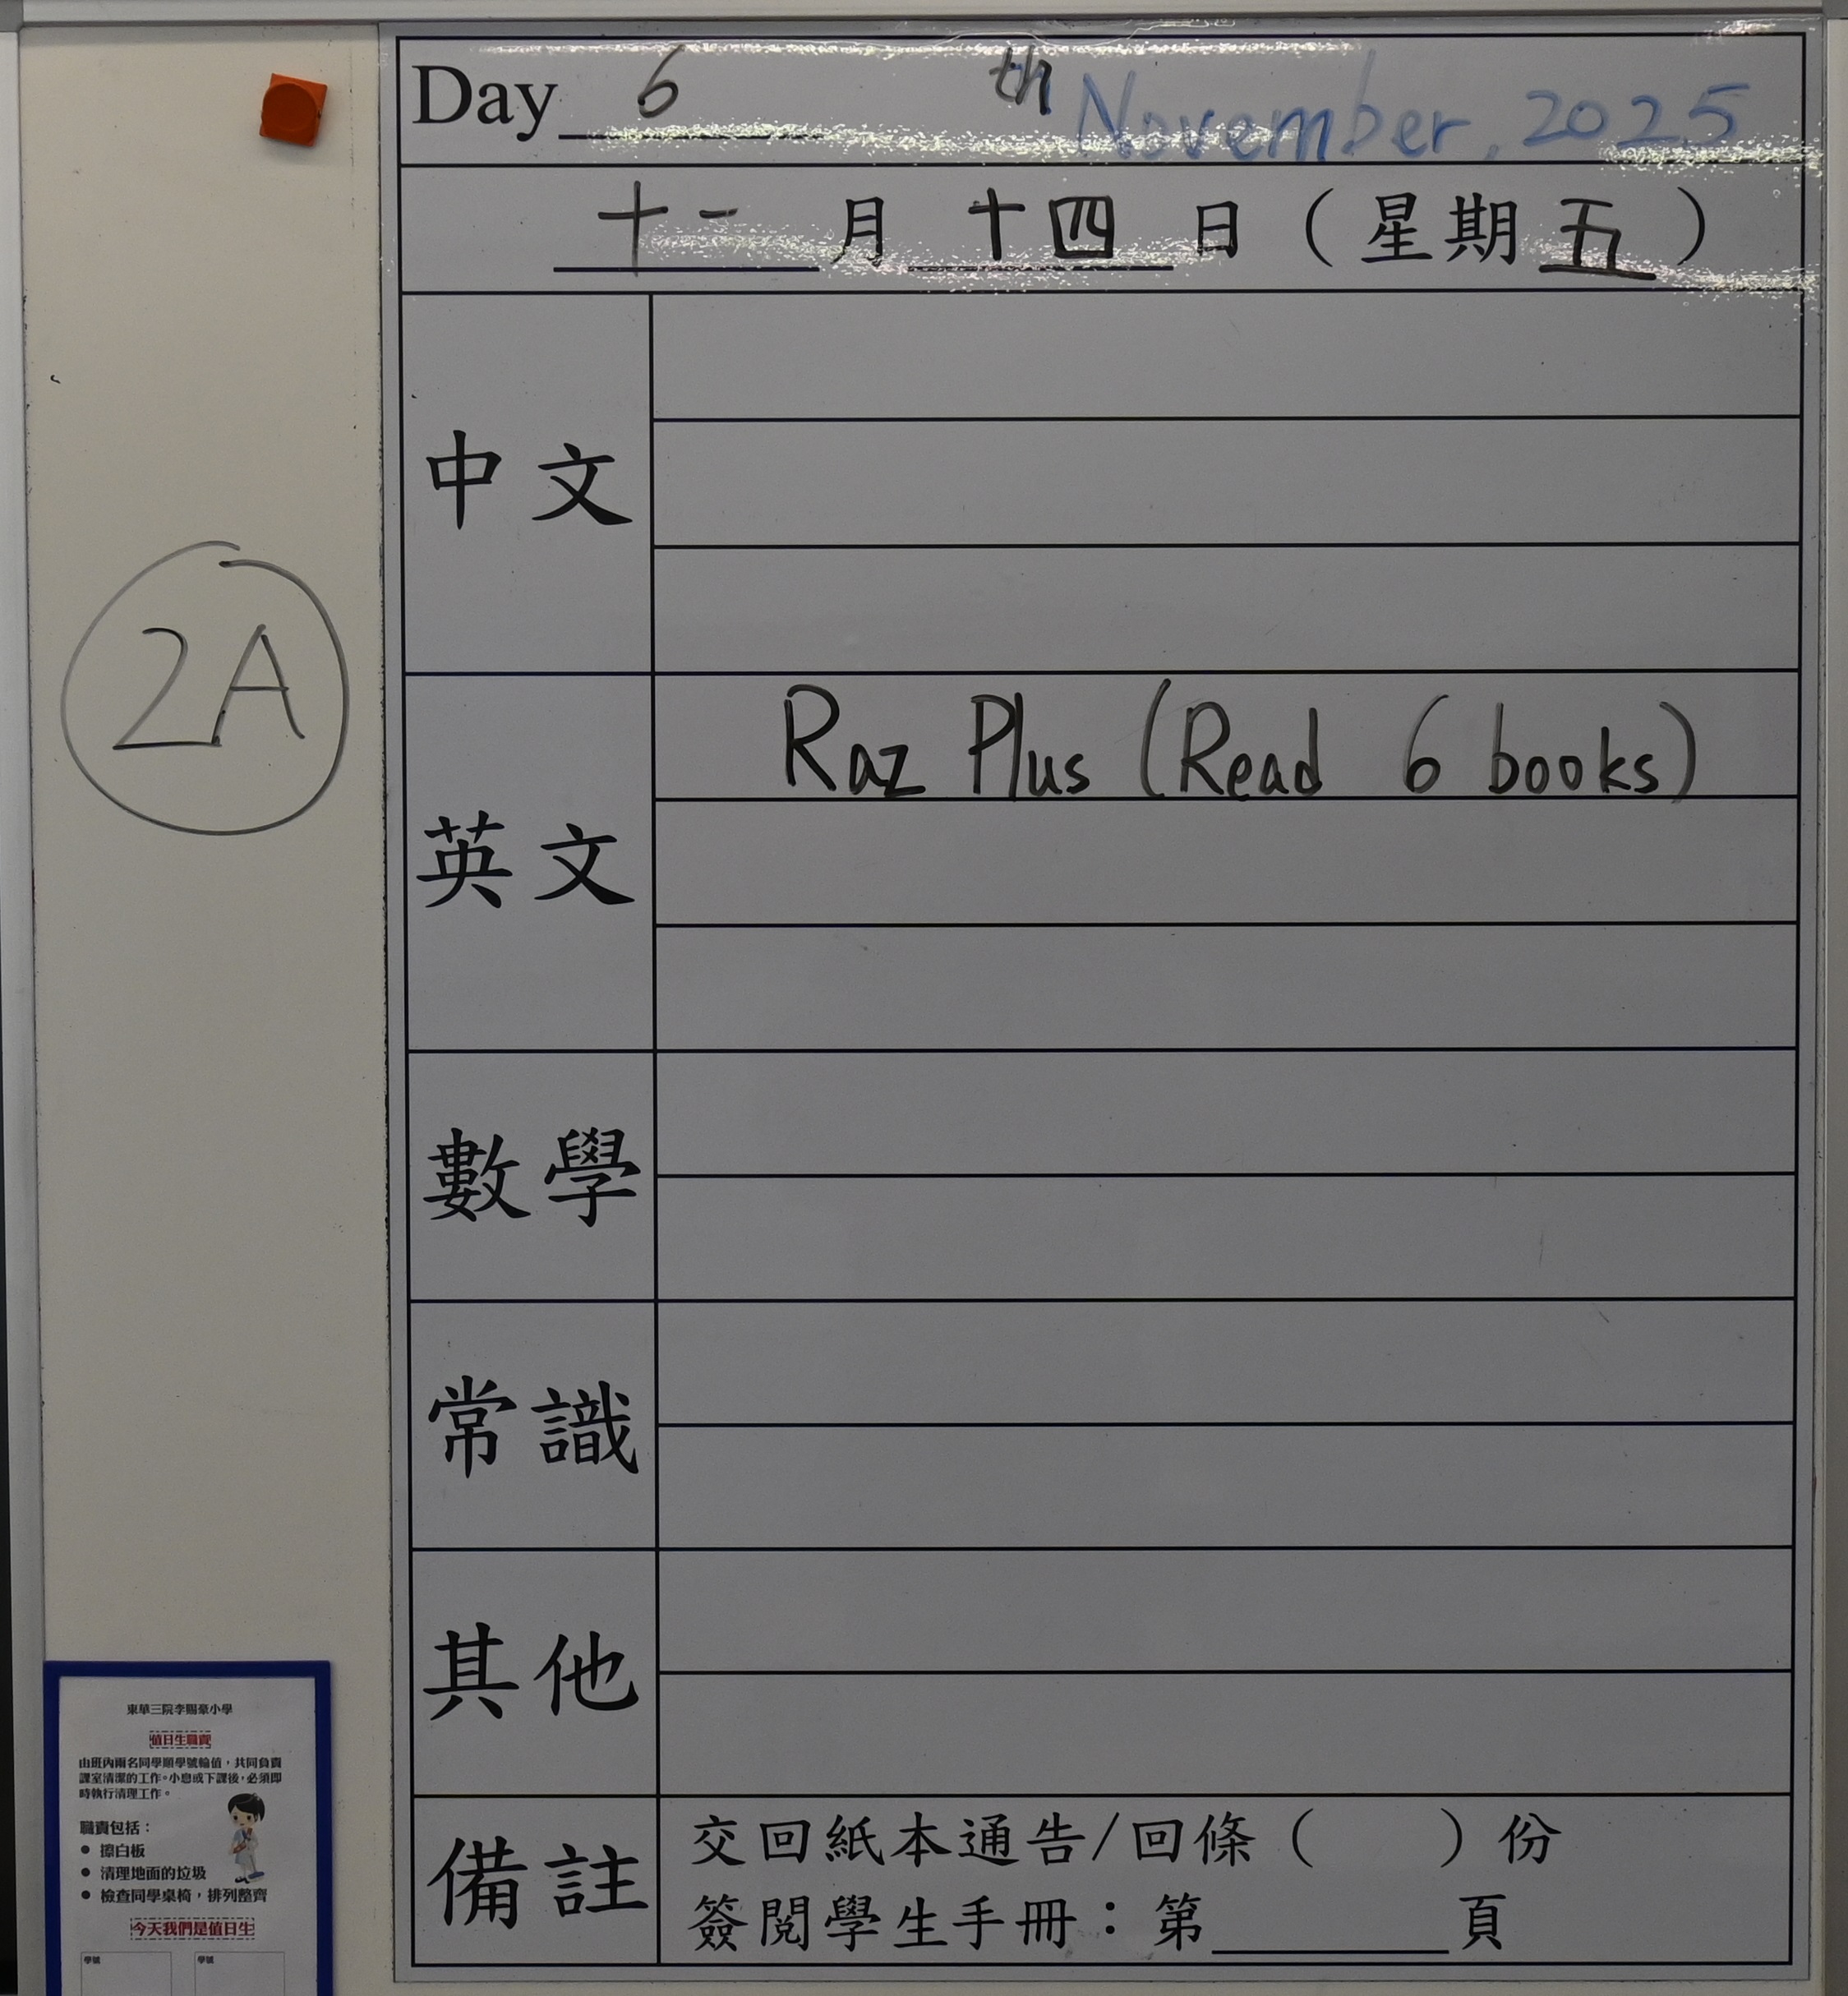 Day 6 th November, 2025
十一月十四日（星期五）
中文
2A
英文
Raz Plus (Read 6 books)
數學
常識
其他
備註
交回紙本通告/回條（ ）份
簽閱學生手冊：第______頁
東華三院李賜豪小學
值日生職責
由班內兩名同學順學號輪值，共同負責
課室清潔的工作。小息或下課後，必須即
時執行清理工作。
職責包括：
● 擦白板
● 清理地面的垃圾
● 檢查同學桌椅，排列整齊
今天我們是值日生
學號 學號